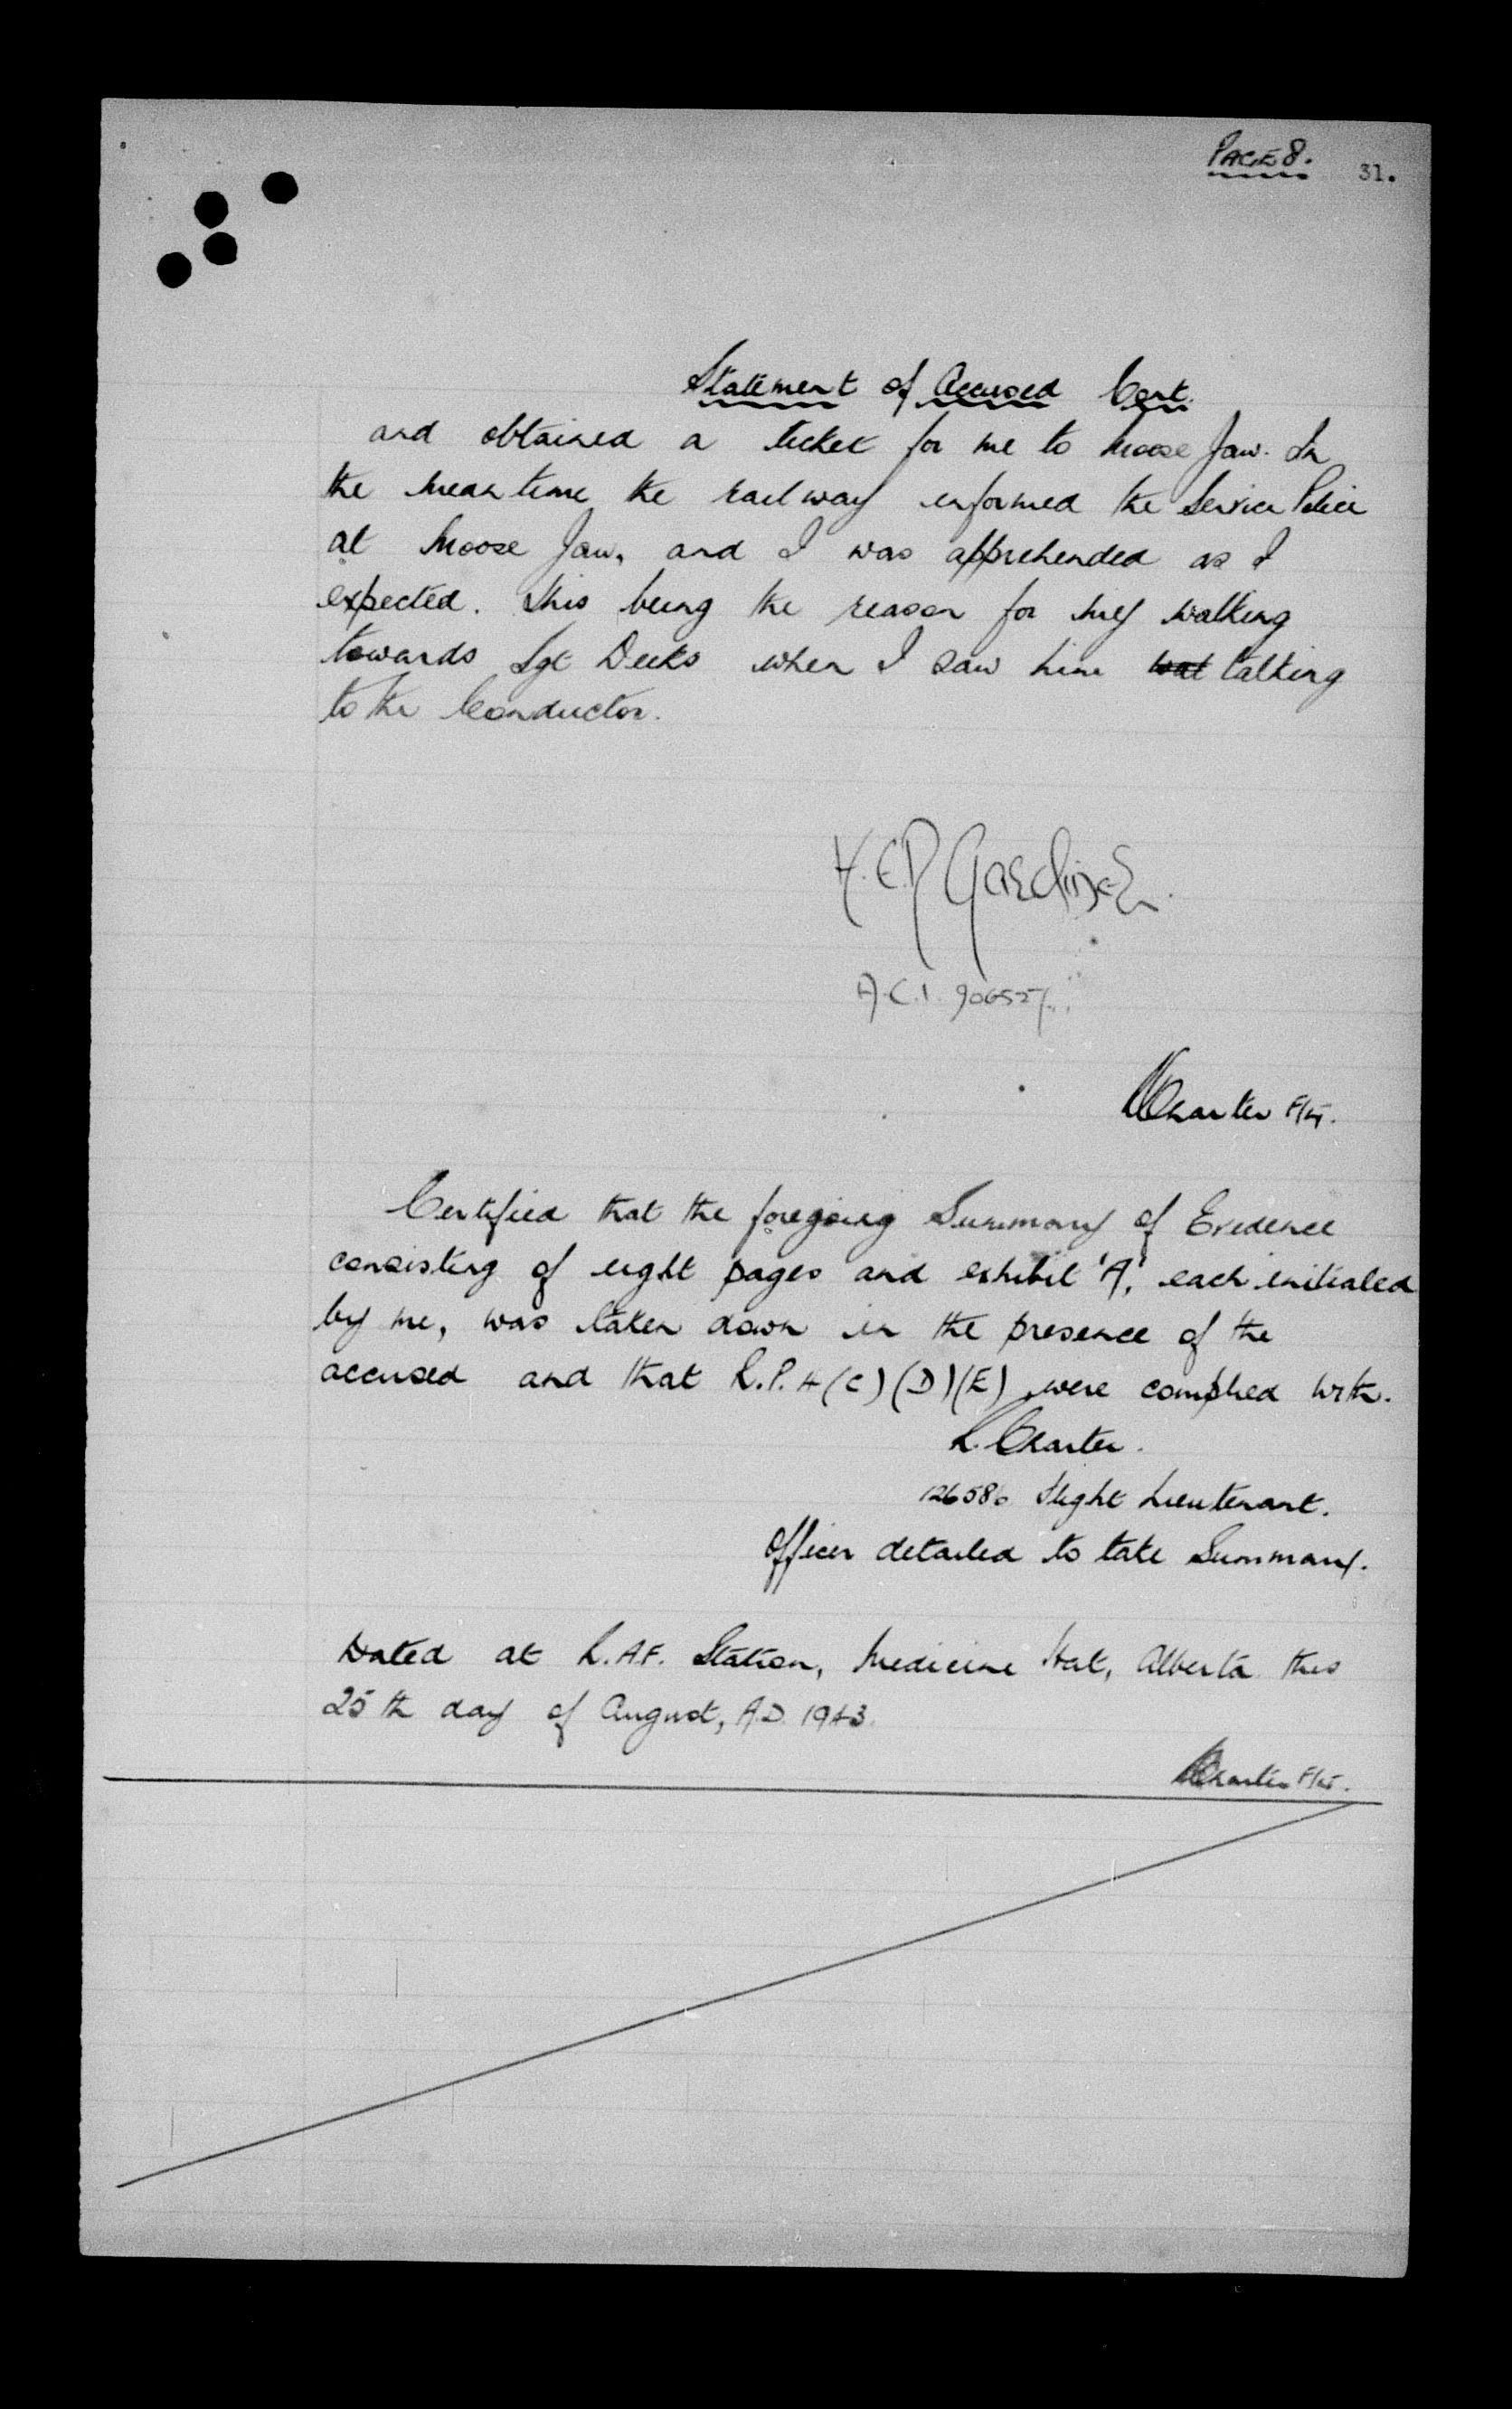 PAGE 8. 31.
Statement of Accused Cont.
and obtained a ticket for me to Moose Jaw. In
the meantime the railway informed the Service Police
at Moose Jaw, and I was apprehended as I
expected. This being the reason for my walking
towards Sgt Deeks when I saw him talking
to the Conductor.
H.E.P Gardiner.
A.C.1. 906527
Charter F/Lt.
Certified that the foregoing Summary of Evidence
consisting of eight pages and exhibit 'A', each initialed
by me, was taken down in the presence of the
accused and that R.P. 4 (C) (D) (E) were complied with.
L. Charter.
126580 Flight Lieutenant.
Officer detailed to take Summary.
Dated at R.A.F. Station, Medicine Hat, Alberta this
25th day of August, A.D. 1943.
Charter F/Lt.